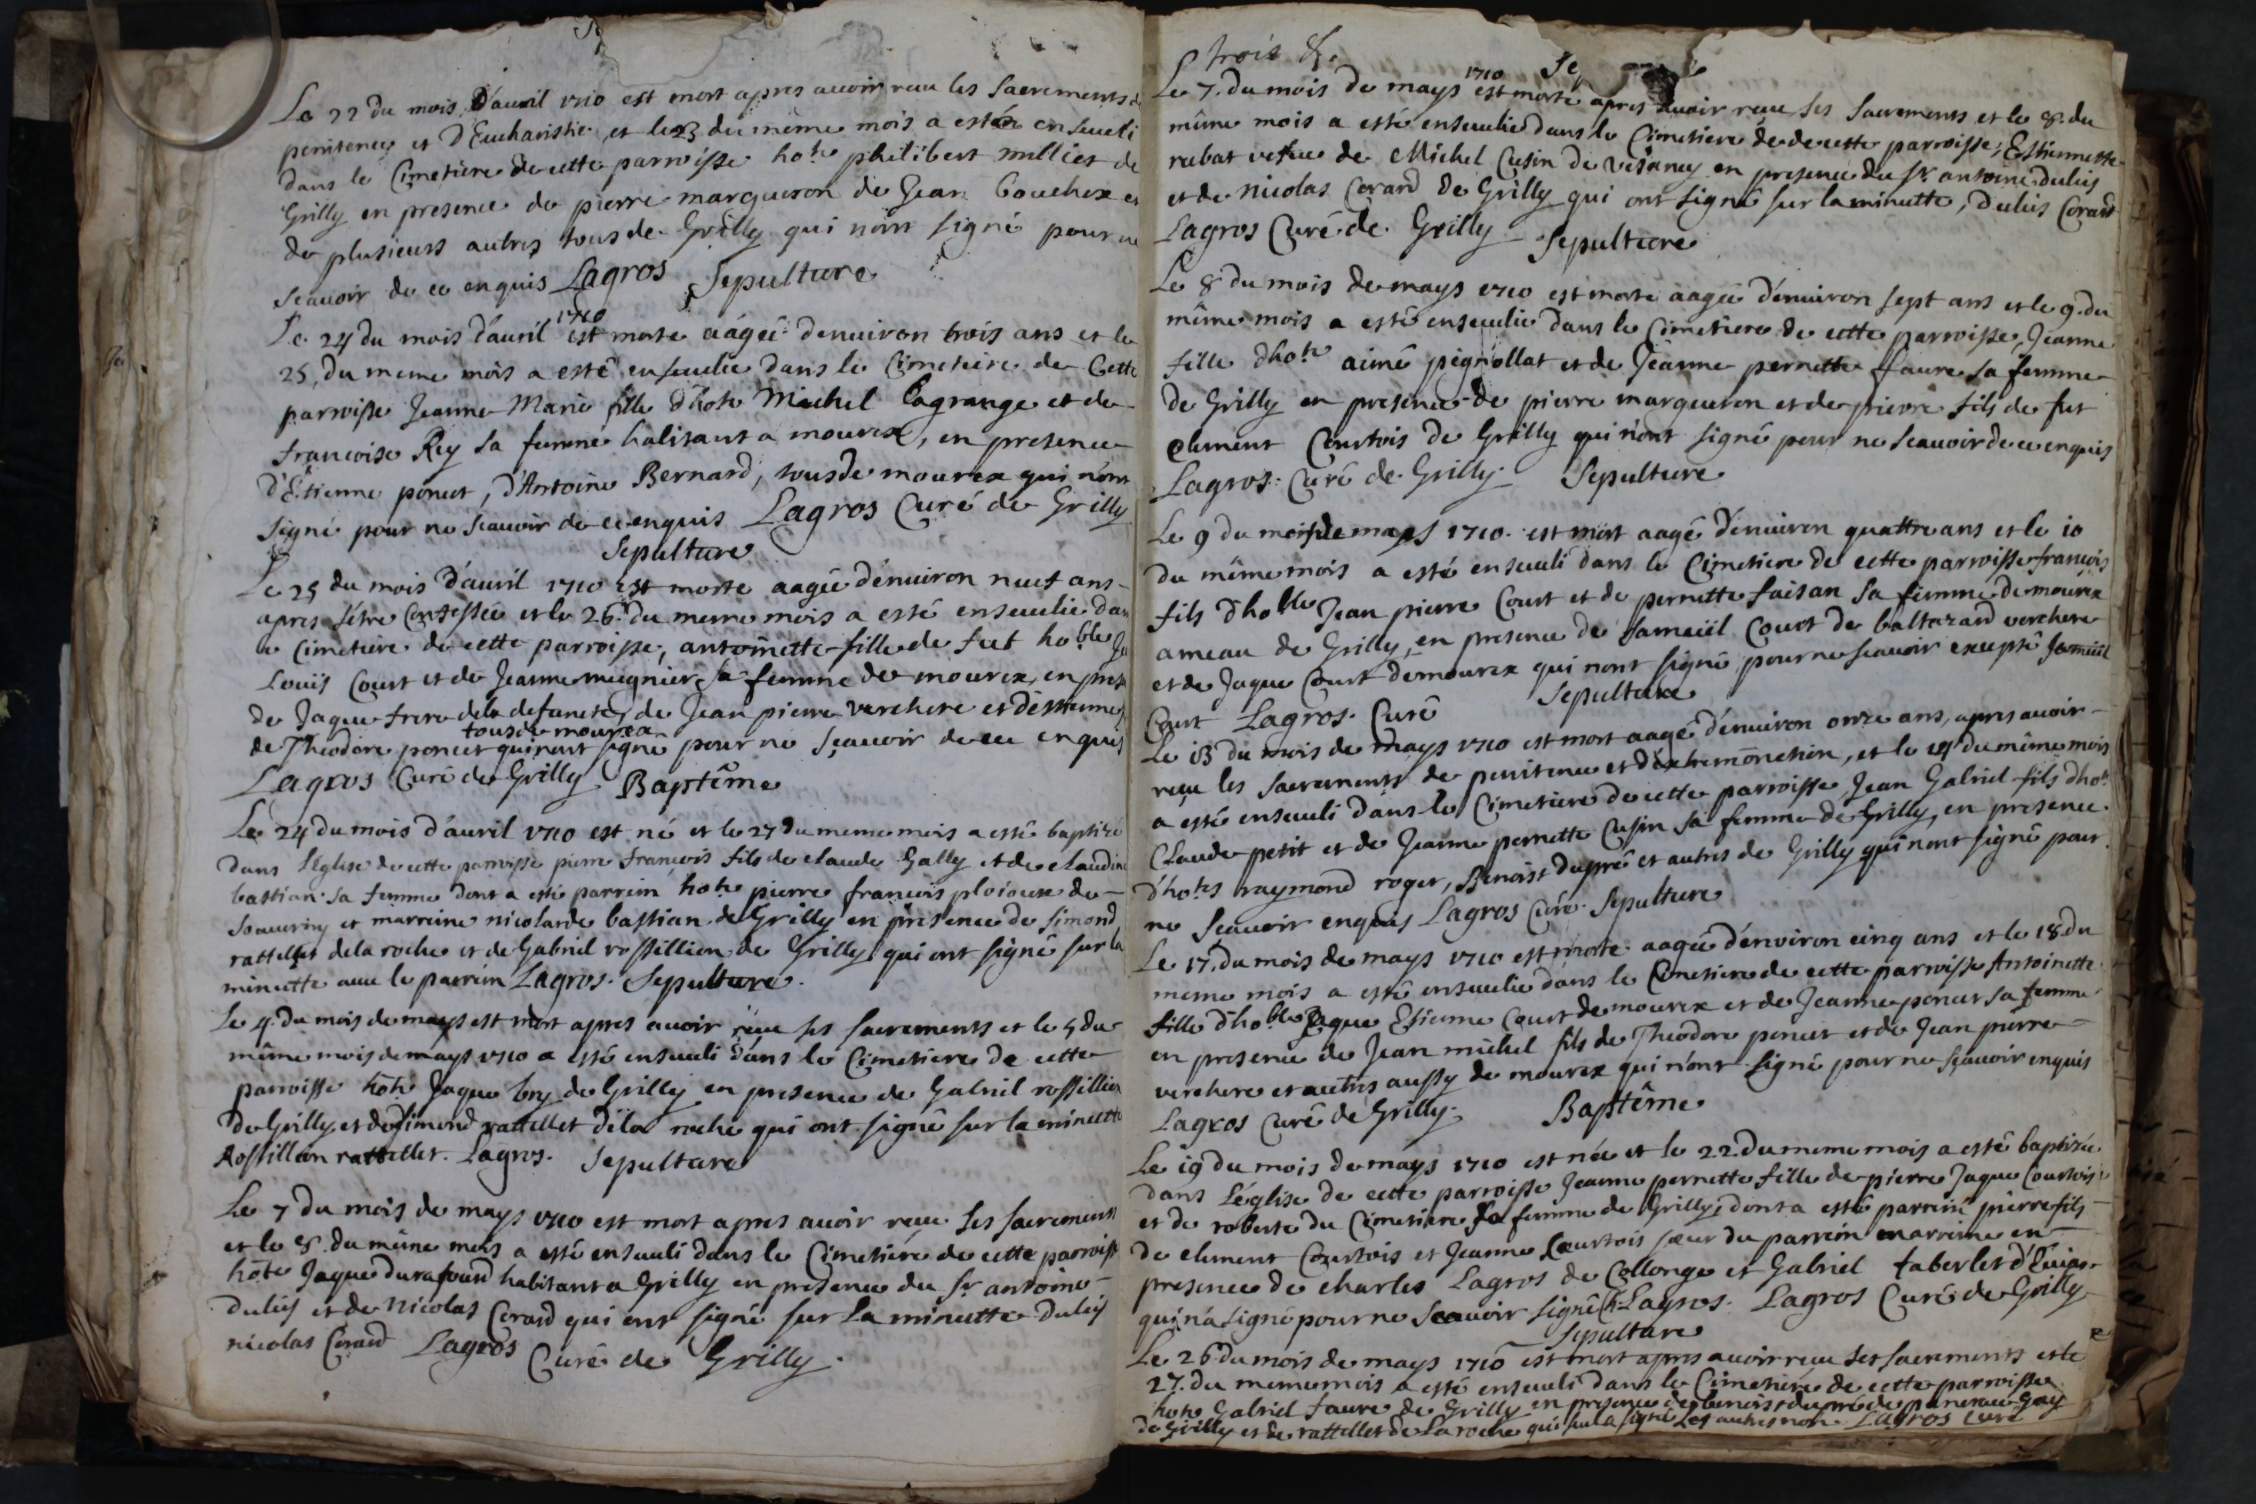 Le 22 du mois d'auril 1710 est mort apres auoir reçu les sacrements de
penitence et d'Eucharistie, et le 23 du même mois a esté enseueli
dans le Cimetiere de cette parroisse hote philibert millict de
Grilly en presence de pierre margueron de Jean bouchex et
de plusieurs autres tous de Grilly qui n'ont signé pour ne
sçauoir de ce enquis Lagros Sepulture
Le 24 du mois d'auril 1710 est morte aagée denuiron trois ans et le
25. du meme mois a esté enseuelie dans le Cimetiere de Cette
parroisse Jeanne Marie fille d'hote Michel Lagrange et de
francoise Rey sa femme habitant a mourex, en presence
d'Etienne poncet, d'Antoine Bernard, tous de mourex qui n'ont
signé pour ne scauoir de ce enquis Lagros Curé de Grilly
Sepulture
Le 25 du mois d'auril 1710 est morte aagée d'enuiron neuf ans
apres s'être Confessée et le 26. du meme mois a esté enseuelie dans
le Cimetiere de cette parroisse, antoinette fille de fut hoble
Louis Court et de Jeanne mugnier sa femme de mourex, en pres
de Jaque frere de la defuncte, de Jean pierre verchere et d'étienne
tous de mourex
de Theodore poncet qui n'ont signé pour ne sçauoir de ce enquis
Lagros Curé de Grilly Baptême
Le 24 du mois d'auril 1710 est né et le 27 du meme mois a esté baptizé
dans l'église de cette parroisse pierre francois fils de claude Gally et de claudine
bastian sa femme dont a esté parrein hote pierre francois ploioux de
Sauuerny et marreine nicolarde bastian de Grilly en presence de simond
rattellet de la roche et de Gabriel rossillion de Grilly qui ont signé sur la
minutte auec le parrein Lagros. Sepulture.
Le 4. du mois de mays est mort apres auoir reçu ses sacrements et le 5 du
même mois de mays 1710 a esté enseueli dans le Cimetiere de cette
parroisse hote Jaque bry de Grilly en presence de Gabriel rossillion
de Grilly et de simond rattellet de la roche qui ont signé sur la minutte
Rossillion rattellet. Lagros. Sepulture
Le 7 du mois de mays 1710 est mort apres auoir reçu ses sacrements
et le 8. du même mois a esté enseueli dans le Cimetiére de cette parroisse
hote Jaque durafourd habitant a Grilly en presence du Sr antoine
dulis et de Nicolas Corard qui ont signé sur la minutte dulis
nicolas Corard Lagros Curé de Grilly.
trois &.
Le 7. du mois de mays 1710 est morte apres auoir reçu ses sacrements et le 8. du
même mois a esté enseuelie dans le Cimetiere de cette parroisse, Estiennette
rabat vefue de Michel Cusin de Vesancy en presence du Sr antoine dulis
et de Nicolas Corard de Grilly qui ont signé sur la minutte, dulis Corard
Lagros Curé de Grilly Sepulture
Le 8 du mois de mays 1710 est morte aagée d'enuiron sept ans et le 9. du
même mois a esté enseuelie dans le Cimetiere de cette parroisse, Jeanne
fille d'hote aimé pegnollat et de Jeanne pernette ffaure sa femme
de Grilly en presence de pierre margueron et de pierre fils de fut
clement Courtois de Grilly qui n'ont signé pour ne scauoir de ce enquis
Lagros. Curé de Grilly. Sepulture
Le 9 du mois de mays 1710. est mort aagé d'enuiron quattre ans et le 10
du même mois a esté enseueli dans le Cimetiere de cette parroisse françois
fils d'hoble Jean pierre Court et de pernette faisan sa femme de mourex
ameau de Grilly, en presence de Samuël Court de baltazard verchere
et de Jaque Court de mourex qui n'ont signé pour ne scauoir excepté Samuël
Court Lagros. Curé Sepulture
Le 13 du mois de mays 1710 est mort aagé d'enuiron onze ans, apres auoir
reçu les sacrements de penitence et d'extremonction, et le 14 du même mois
a esté enseueli dans le Cimetiere de cette parroisse Jean Gabriel fils d'hote
Claude petit et de Jeanne pernette Cusin sa femme de Grilly, en presence
d'hotes raymond roger, Benoist dupré et autres de Grilly qui n'ont signé pour
ne scauoir enquis Lagros Curé. Sepulture
Le 17. du mois de mays 1710 est morte aagée d'environ cinq ans et le 18. du
meme mois a esté enseuelie dans le Cimetiere de cette parroisse Antoinette
fille d'hoble Jaque Etienne Court de mourex et de Jeanne poncet sa femme
en presence de Jean michel fils de Theodore poncet et de Jean pierre
verchere et autres aussy de mourex qui n'ont signé pour ne sçauoir enquis
Lagros Curé de Grilly. Baptême
Le 19 du mois de mays 1710 est née et le 22. du meme mois a esté baptizée
dans l'église de cette parroisse Jeanne pernette fille de pierre Jaque Courtois
et de roberte du Cimetiere sa femme de Grilly, dont a esté parrein pierre fils
de clement Courtois et Jeanne Courtois sœur du parrein marreine en
presence de charles Lagros de Collonge et Gabriel taberlet d'Euian
qui n'a signé pour ne scauoir signé Ch. Lagros. Lagros Curé de Grilly
Sepulture
Le 26 du mois de mays 1710 est mort apres auoir reçu ses sacrements et le
27. du meme mois a esté enseueli dans le Cimetiére de cette parroisse
hote Gabriel faure de Grilly en presence de benoist dupré de Gay
de Grilly et de rattellet de La roche qui seul a signé Les autres non. Lagros curé